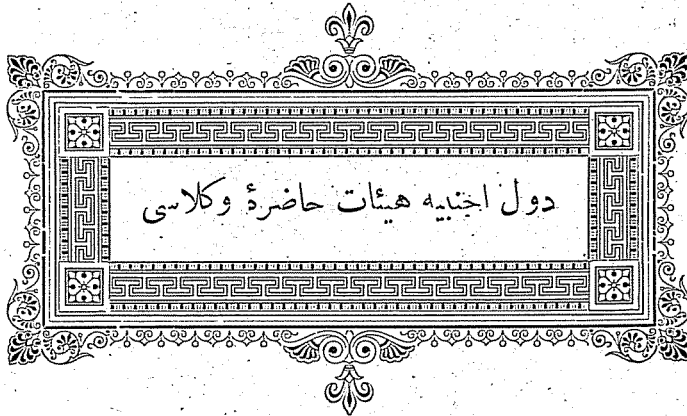 دول اجنبیه هیئات حاضرهٔ وكلاسی